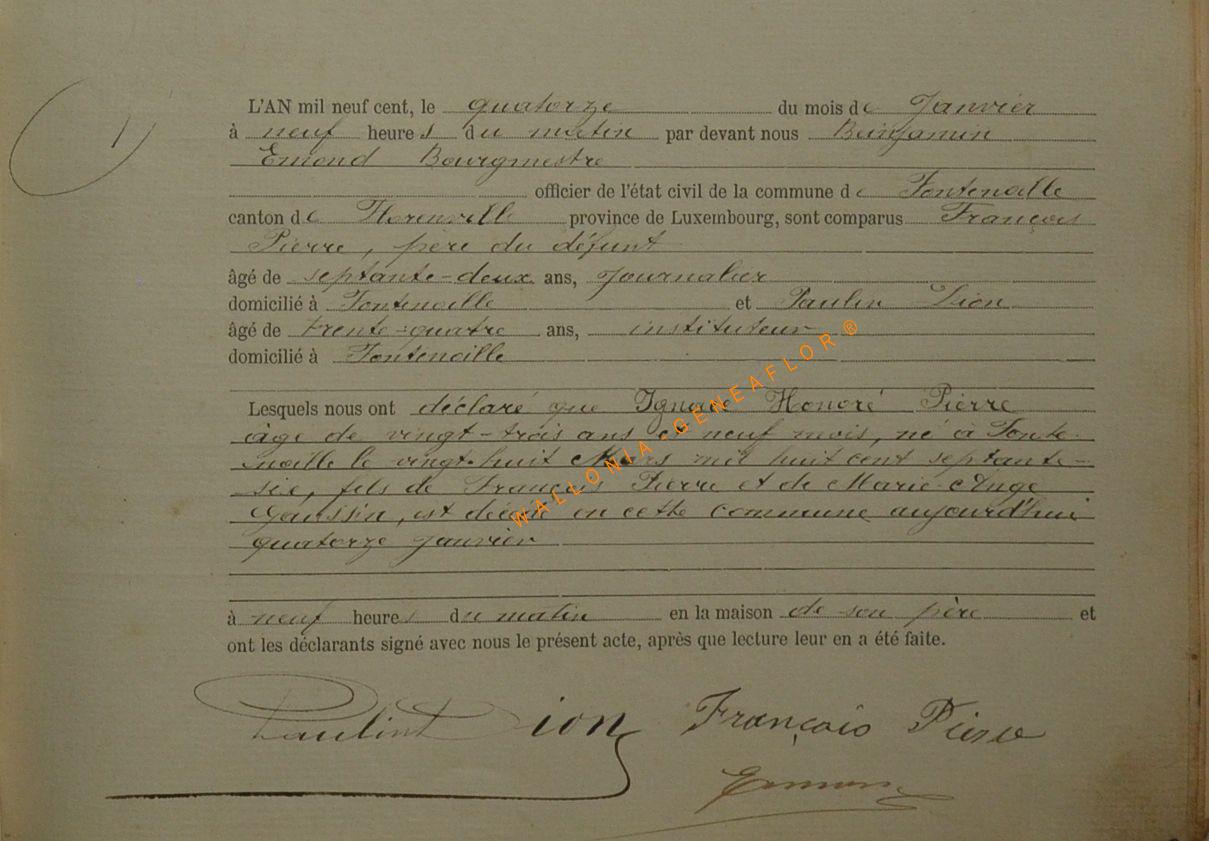 1
L'AN mil neuf cent, le quatorze du mois de Janvier
à neuf heures du matin par devant nous Benjamin
Emond Bourgmestre
officier de l'état civil de la commune de Fontenoille
canton de Florenville province de Luxembourg, sont comparus François
Pierre, père du défunt
âgé de septante-deux ans, Journalier
domicilié à Fontenoille et Paulin Dion
âgé de trente-quatre ans, instituteur
domicilié à Fontenoille
Lesquels nous ont déclaré que Ignace Honoré Pierre
âgé de vingt-trois ans et neuf mois, né à Fonte-
noille le vingt-huit Mars mil huit cent septante-
six, fils de François Pierre et de Marie-Ange
Goussin, est décédé en cette commune aujourd'hui
quatorze janvier
à neuf heures du matin en la maison de son père et
ont les déclarants signé avec nous le présent acte, après que lecture leur en a été faite.
Paulin Dion François Pierre
Emond
WALLONIA-GENEAFLOR®